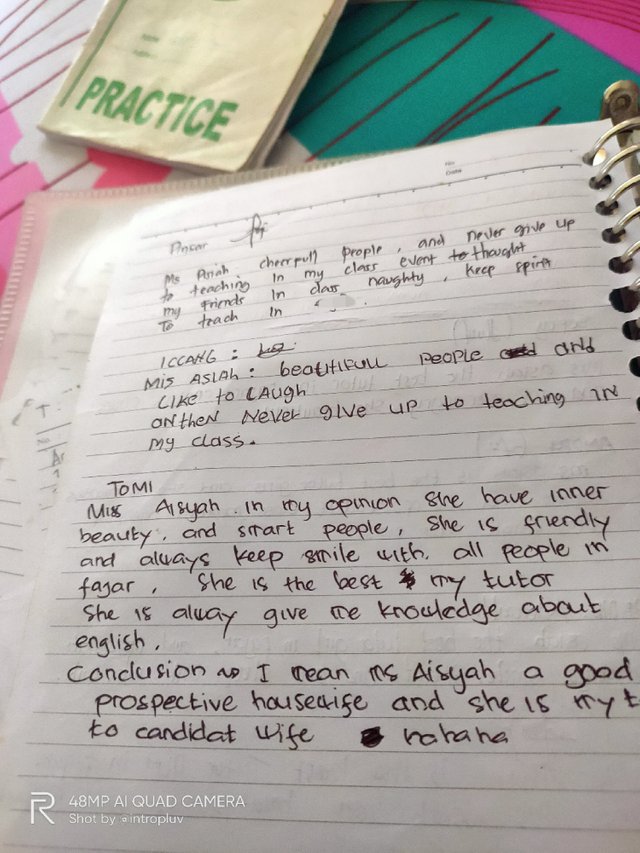 PRACTICE
No
Date
Ansar
Ms Asiah cheerfull people, and never give up
to teaching In my class event to thought
my friends In class naughty, keep spirit
To teach In
ICCANG :
MIS ASIAH : beautifull people and
LIKE to LAUGH
ONthen Never give up to teaching IN
My class.
TOMI
Miss Aisyah. in my opinion she have inner
beauty, and smart people, she is friendly
and always keep smile with. all people in
fajar, she is the best my tutor
She is alway give me knowledge about
english.
Conclusion I mean Ms Aisyah a good
prospective housewife and she is my t
to candidat wife hahaha
48MP AI QUAD CAMERA
Shot by intropluv